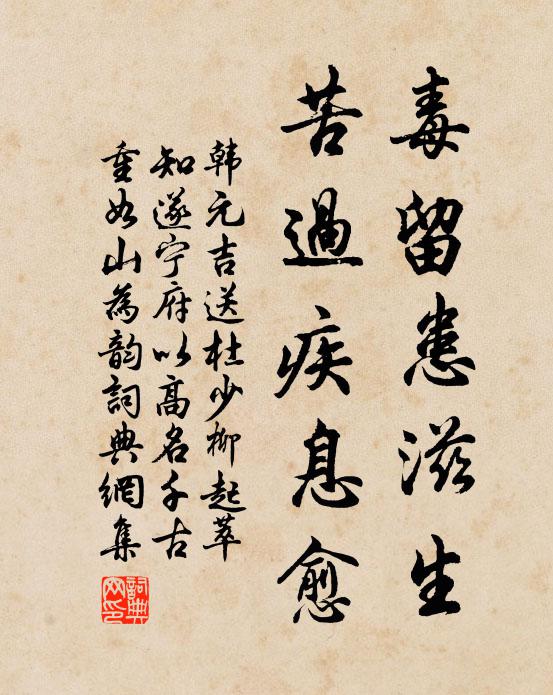 毒留患滋生
苦過疾息愈
韩元吉送杜少卿起莘
知遂宁府以高名千古
重如山為韵詞典網集
詞典網印